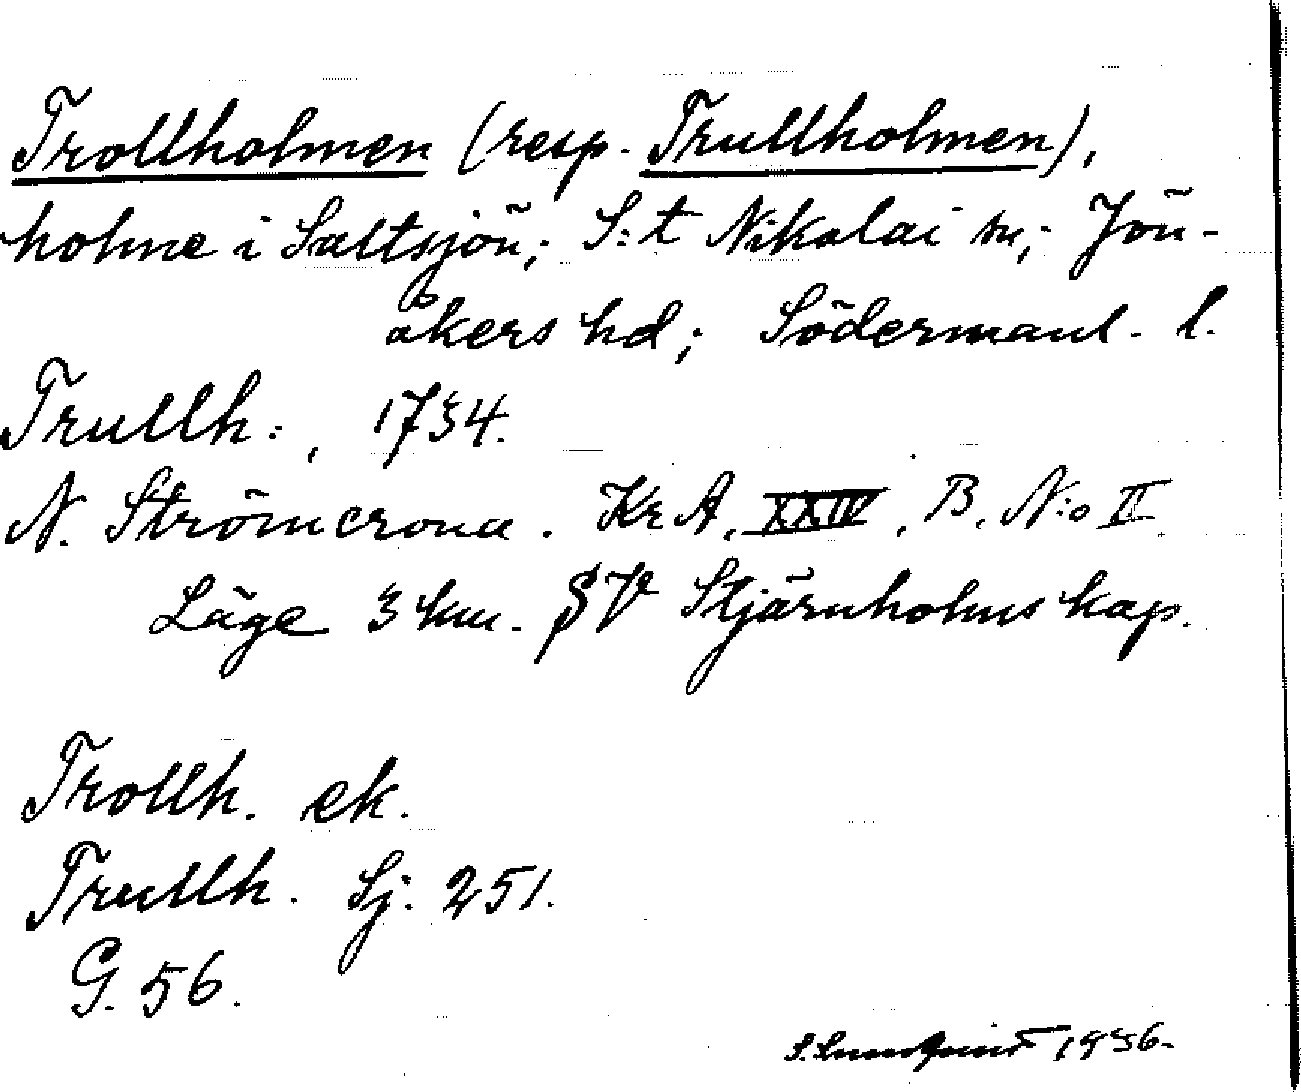 Trollholmen (resp. Trullholmen),
holme i Saltsjön; S:t Nikolai sn; Jön-
åkers hd; Södermanl. l.
Trullh:, 1734.
N. Strömcrona. Kr A, XXIV, B, N:o II
Läge 3 km. SV Stjärnholms kap.
Trollh. ek.
Trullh. Sj. 251.
G. 56.
S. Lundquist 1936.